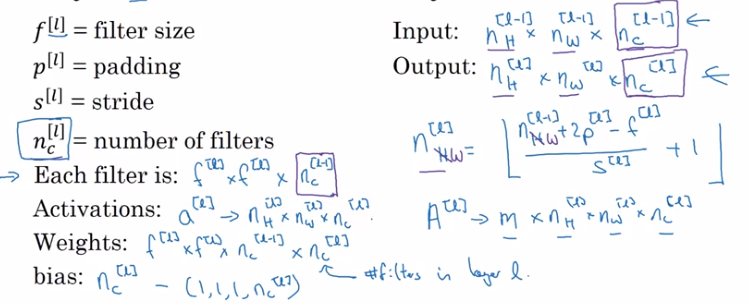 f^[l] = filter size
p^[l] = padding
s^[l] = stride
n_c^[l] = number of filters
→ Each filter is: f^[l] × f^[l] × n_c^[l-1]
Activations: a^[l] → n_H^[l] × n_W^[l] × n_c^[l].
Weights: f^[l] × f^[l] × n_c^[l-1] × n_c^[l]
bias: n_c^[l] - (1,1,1,n_c^[l])
← #filters in layer l.
Input: n_H^[l-1] × n_W^[l-1] × n_c^[l-1] ←
Output: n_H^[l] × n_W^[l] × n_c^[l] ←
n_W^[l] = ⌊ (n_W^[l-1] + 2p^[l] - f^[l]) / s^[l] + 1 ⌋
A^[l] → m × n_H^[l] × n_W^[l] × n_c^[l]